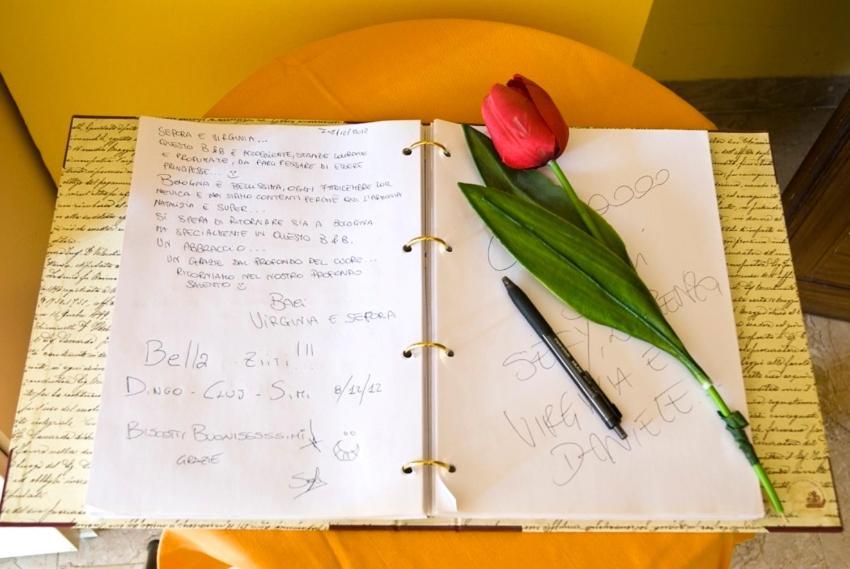 7-8/12/2012
SEFORA E VIRGINIA...
QUESTO B&B È ACCOGLIENTE, STANZE COLORATE
E PROFUMATE, DA FARCI PENSARE DI ESSERE
PRINCIPESSE...
BOLOGNA È BELLISSIMA, OGGI 8 DICEMBRE
NEVICA E NOI SIAMO CONTENTI PERCHÈ QUI L'ARMONIA
NATALIZIA È SUPER...
SI SPERA DI RITORNARE SIA A BOLOGNA
MA SPECIALMENTE IN QUESTO B&B.
UN ABBRACCIO...
UN GRAZIE DAL PROFONDO DEL CUORE...
RITORNIAMO NEL NOSTRO PROFONDO
SALENTO
BACI
VIRGINIA E SEFORA
Bella ZiiTi!!!
DINGO - CLUJ - SIMI 8/12/12
BISCOTTI BUONISSSSSIMI!
GRAZIE
SEFY,
VIRGINIA E
DANIELE